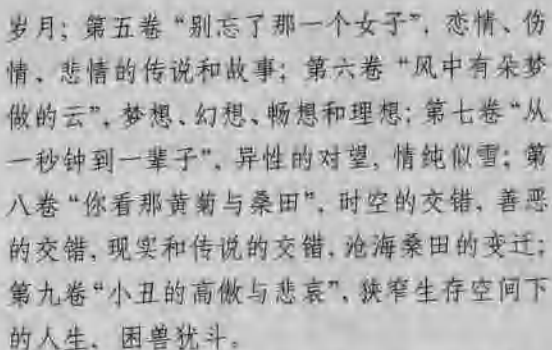 岁月；第五卷“别忘了那一个女子”，恋情、伤
情、悲情的传说和故事；第六卷“风中有朵梦
做的云”，梦想、幻想、畅想和理想；第七卷“从
一秒钟到一辈子”，异性的对望，情纯似雪；第
八卷“你看那黄菊与桑田”，时空的交错、善恶
的交错，现实和传说的交错，沧海桑田的变迁；
第九卷“小丑的高傲与悲哀”，狭窄生存空间下
的人生，困兽犹斗。